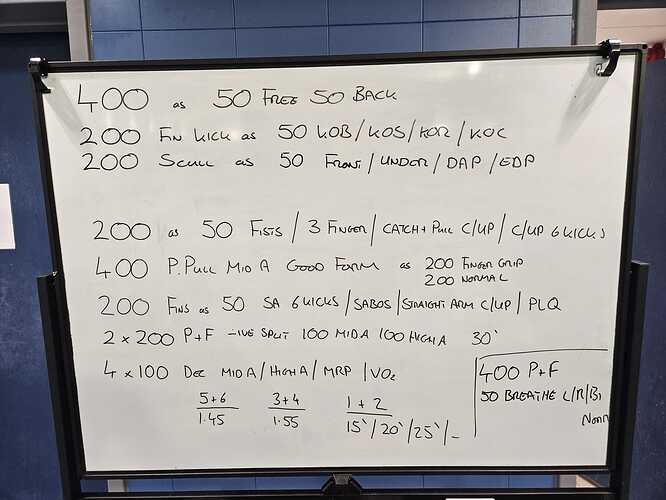 400 as 50 FREE 50 BACK
200 FIN KICK as 50 KOB/KOS/KOR/KOC
200 SCULL as 50 FRONT/UNDER/DAP/EDP
200 as 50 FISTS / 3 FINGER / CATCH + PULL C/UP / C/UP 6 KICKS
400 P.PULL MID A GOOD FORM as 200 FINGER GRIP
200 NORMAL
200 FINS as 50 SA 6 KICKS/SABOS/STRAIGHT ARM C/UP/PLQ
2 x 200 P+F -IVE SPLIT 100 MID A 100 HIGH A 30`
4 x 100 DEC MID A/HIGH A/MRP/VO2
5+6 3+4 1+2
1.45 1.55 15`/20`/25`/-
400 P+F
50 BREATHE L/R/Bi
NORM